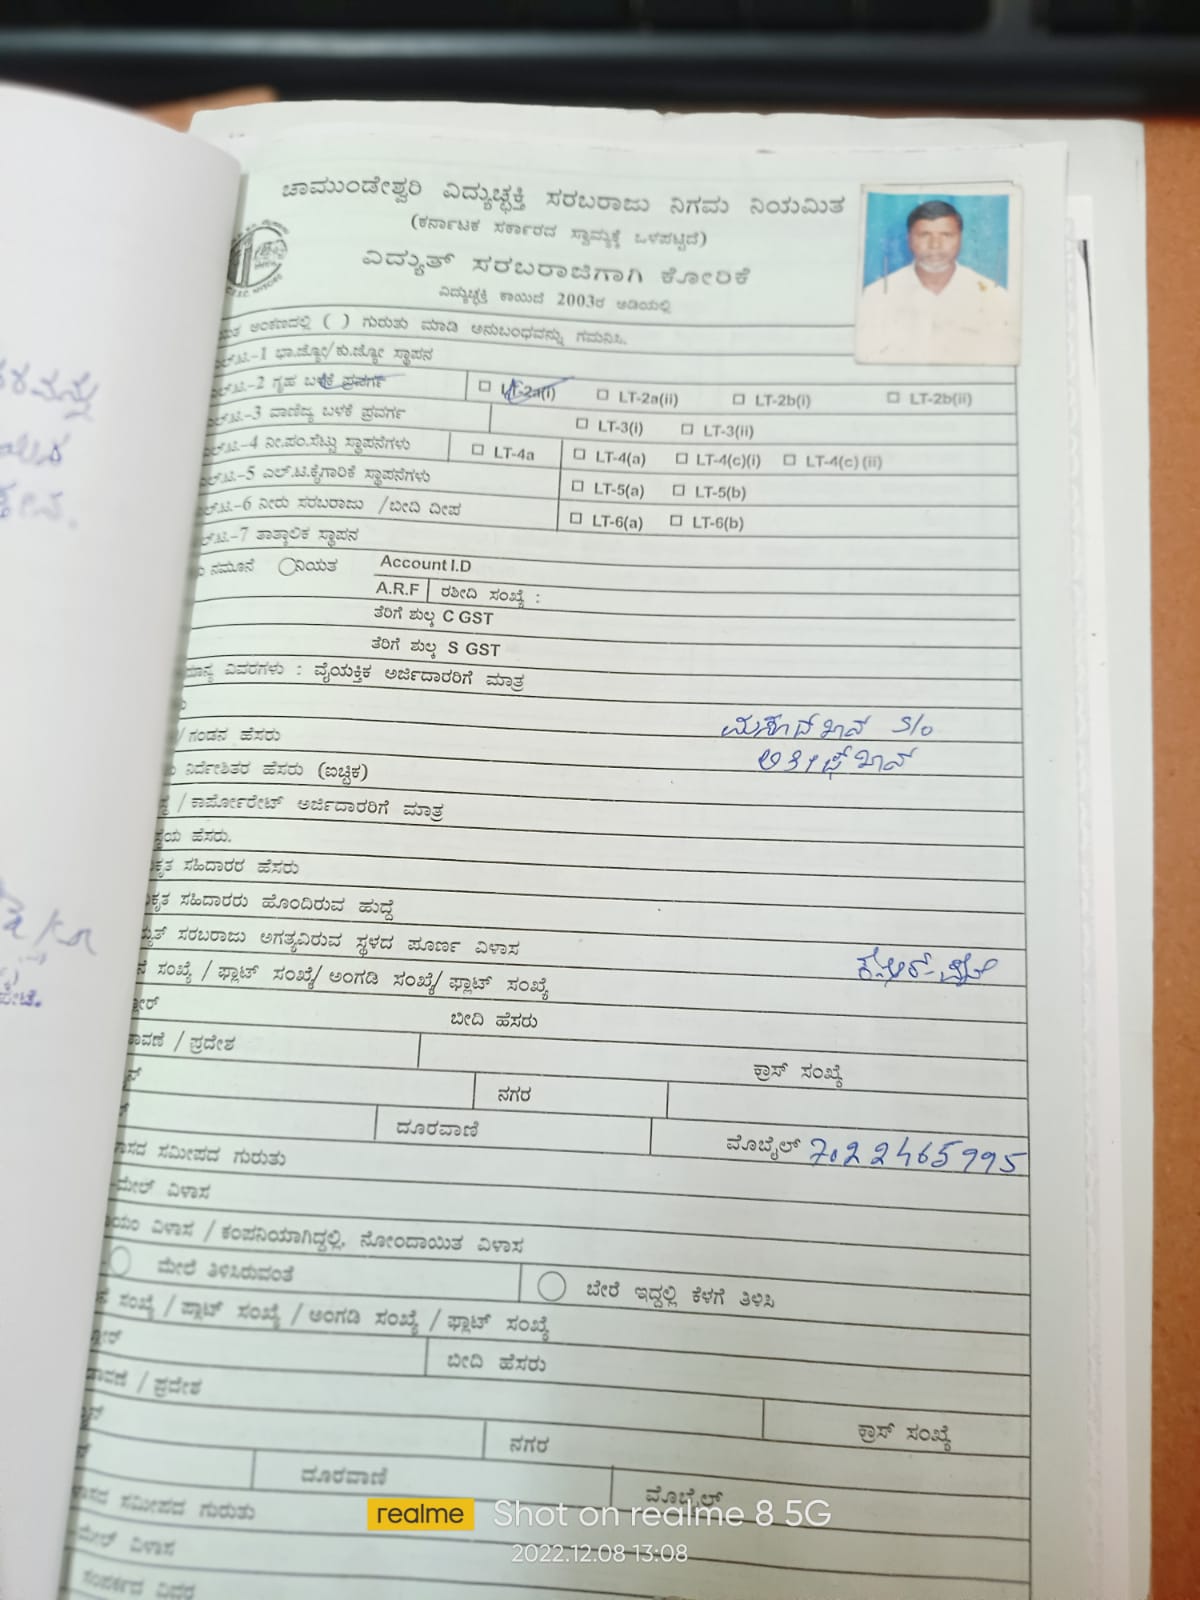 ಚಾಮುಂಡೇಶ್ವರಿ ವಿದ್ಯುಚ್ಛಕ್ತಿ ಸರಬರಾಜು ನಿಗಮ ನಿಯಮಿತ
(ಕರ್ನಾಟಕ ಸರ್ಕಾರದ ಸ್ವಾಮ್ಯಕ್ಕೆ ಒಳಪಟ್ಟಿದೆ)
ವಿದ್ಯುತ್ ಸರಬರಾಜಿಗಾಗಿ ಕೋರಿಕೆ
ವಿದ್ಯುಚ್ಛಕ್ತಿ ಕಾಯಿದೆ 2003ರ ಅಡಿಯಲ್ಲಿ
ಅಂಕಣದಲ್ಲಿ ( ) ಗುರುತು ಮಾಡಿ ಅನುಬಂಧವನ್ನು ಗಮನಿಸಿ.
ಲ್.ಟಿ.-1 ಭಾ.ಜ್ಯೋ/ಕು.ಜ್ಯೋ ಸ್ಥಾಪನ
ಲ್.ಟಿ.-2 ಗೃಹ ಬಳಕೆ ಪ್ರವರ್ಗ LT-2a(i) LT-2a(ii) LT-2b(i) LT-2b(ii)
ಲ್.ಟಿ.-3 ವಾಣಿಜ್ಯ ಬಳಕೆ ಪ್ರವರ್ಗ LT-3(i) LT-3(ii)
ಲ್.ಟಿ.-4 ನೀ.ಪಂ.ಸೆಟ್ಟು ಸ್ಥಾಪನೆಗಳು LT-4a LT-4(a) LT-4(c)(i) LT-4(c)(ii)
ಲ್.ಟಿ.-5 ಎಲ್.ಟಿ.ಕೈಗಾರಿಕೆ ಸ್ಥಾಪನೆಗಳು LT-5(a) LT-5(b)
ಲ್.ಟಿ.-6 ನೀರು ಸರಬರಾಜು /ಬೀದಿ ದೀಪ LT-6(a) LT-6(b)
ಲ್.ಟಿ.-7 ತಾತ್ಕಾಲಿಕ ಸ್ಥಾಪನ
ನಮೂನೆ ನಿಯತ Account I.D
A.R.F ರಶೀದಿ ಸಂಖ್ಯೆ :
ತೆರಿಗೆ ಶುಲ್ಕ C GST
ತೆರಿಗೆ ಶುಲ್ಕ S GST
ಮಾನ್ಯ ವಿವರಗಳು : ವೈಯಕ್ತಿಕ ಅರ್ಜಿದಾರರಿಗೆ ಮಾತ್ರ
S/o
/ ಗಂಡನ ಹೆಸರು
ನಿರ್ದೇಶಿತರ ಹೆಸರು (ಐಚ್ಛಿಕ)
/ ಕಾರ್ಪೋರೇಟ್ ಅರ್ಜಿದಾರರಿಗೆ ಮಾತ್ರ
ಹೆಸರು.
ಕೃತ ಸಹಿದಾರರ ಹೆಸರು
ಕೃತ ಸಹಿದಾರರು ಹೊಂದಿರುವ ಹುದ್ದೆ
ಸರಬರಾಜು ಅಗತ್ಯವಿರುವ ಸ್ಥಳದ ಪೂರ್ಣ ವಿಳಾಸ
ಸಂಖ್ಯೆ / ಫ್ಲಾಟ್ ಸಂಖ್ಯೆ/ ಅಂಗಡಿ ಸಂಖ್ಯೆ/ ಫ್ಲಾಟ್ ಸಂಖ್ಯೆ
ಬೀದಿ ಹೆಸರು
ಾವಣೆ / ಪ್ರದೇಶ ಕ್ರಾಸ್ ಸಂಖ್ಯೆ
ನಗರ
ದೂರವಾಣಿ ಮೊಬೈಲ್ 7022465995
ಸಮೀಪದ ಗುರುತು
-ಮೇಲ್ ವಿಳಾಸ
ವಿಳಾಸ / ಕಂಪನಿಯಾಗಿದ್ದಲ್ಲಿ, ನೋಂದಾಯಿತ ವಿಳಾಸ
ಮೇಲೆ ತಿಳಿಸಿರುವಂತೆ ಬೇರೆ ಇದ್ದಲ್ಲಿ ಕೆಳಗೆ ತಿಳಿಸಿ
ಸಂಖ್ಯೆ / ಪ್ಲಾಟ್ ಸಂಖ್ಯೆ / ಅಂಗಡಿ ಸಂಖ್ಯೆ / ಫ್ಲಾಟ್ ಸಂಖ್ಯೆ
ಬೀದಿ ಹೆಸರು
ಾವಣೆ / ಪ್ರದೇಶ ಕ್ರಾಸ್ ಸಂಖ್ಯೆ
ನಗರ
ದೂರವಾಣಿ ಮೊಬೈಲ್
ಸಮೀಪದ ಗುರುತು
-ಮೇಲ್ ವಿಳಾಸ
ಸಂಪರ್ಕದ ವಿವರ
realme Shot on realme 8 5G
2022.12.08 13:08